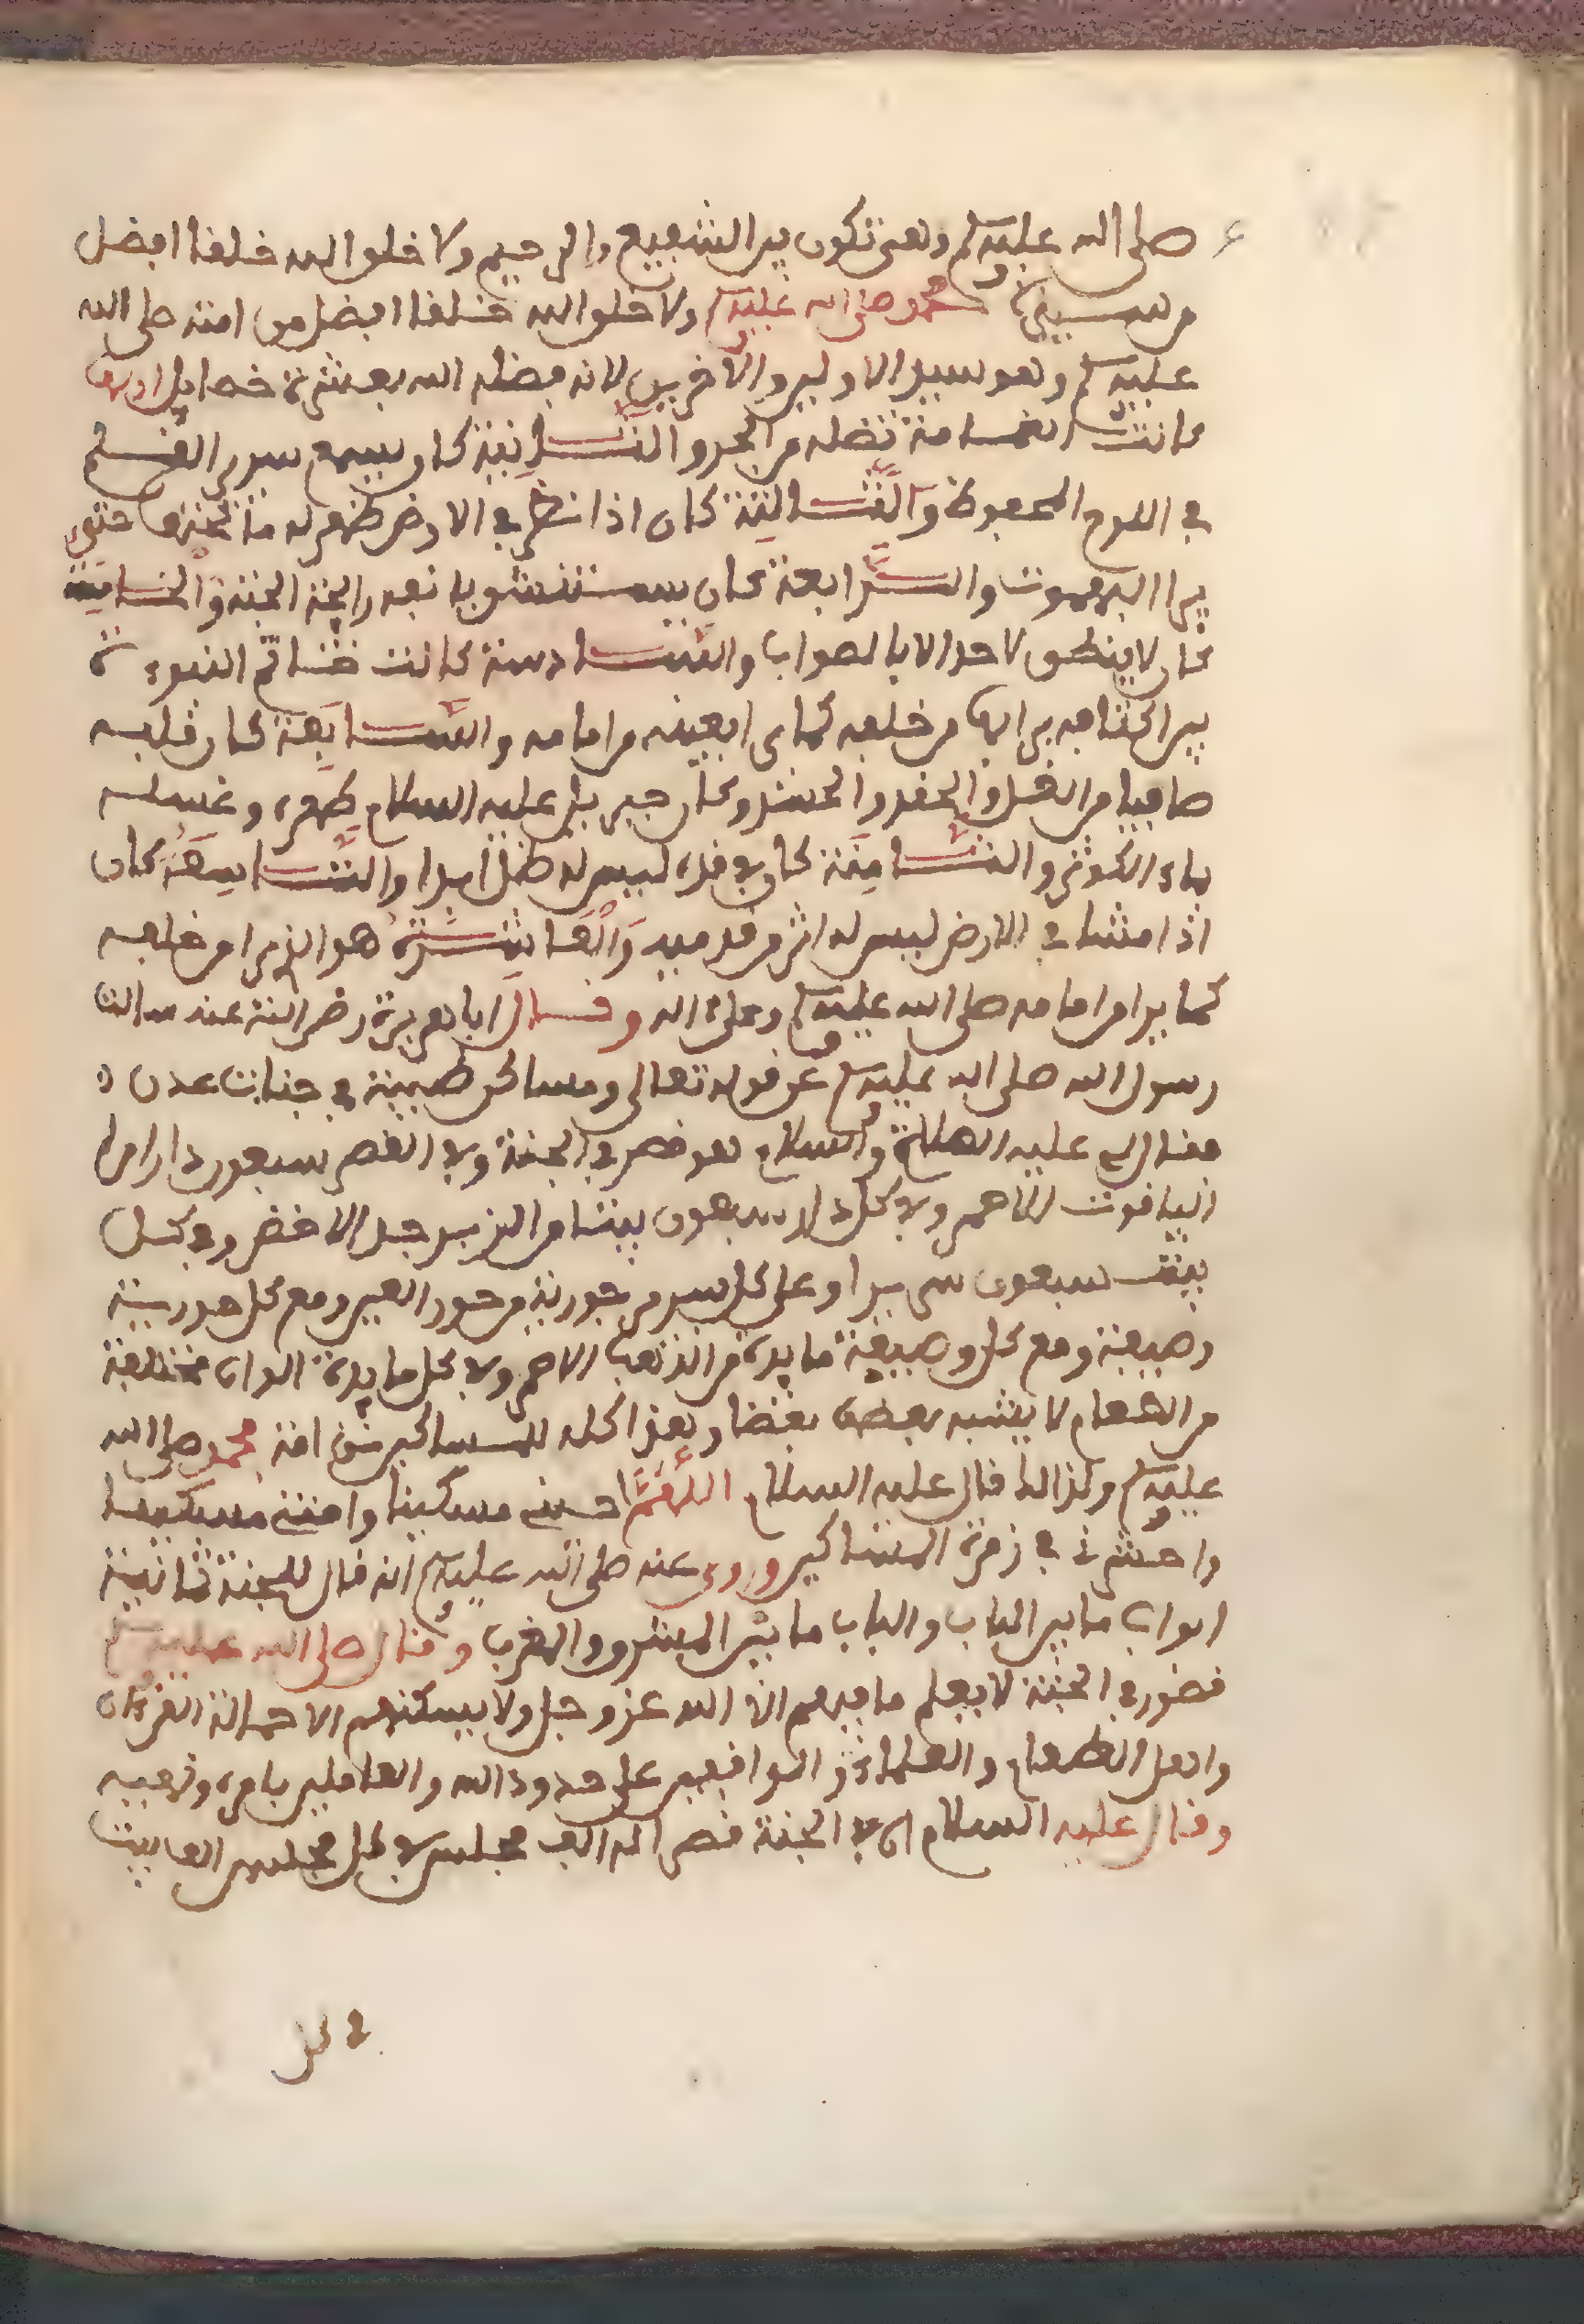 صلى الله عليه وسلم وهي تكون بين الشفيع والرحيم ولا خلق الله خلقا افضل
من سيدنا محمد صلى الله عليه وسلم ولا خلق الله خلقا افضل من امته صلى الله
عليه وسلم وهو سيد الاولين والاخرين لانه فضله الله بعشرة خصايل اولها
كانت الغمامة تظله من الحر والثانية كان يسمع سرير القلم
في اللوح المحفوظ والثالثة كان اذا نظر في الارض ظهر له ما تحتها حتى
يرا البرهموت والرابعة كان يستنشق بانفه رايحة الجنة والخامسة
كان لا ينطق لاحد الا بالصواب والسادسة كانت خاتم النبوءة
بين اكتافه يرا بها من خلفه كما يرا بعينه من امامه والسابعة كان قلبه
صافيا من الغل والحقد والحسد وكان جبريل عليه السلام طهره وغسله
بماء الكوثر والثامنة كان في قده ليس له ظل ابدا والتاسعة كان
اذا مشا في الارض ليس له اثر من قدميه والعاشرة هو الذي يرا من خلفه
كما يرا من امامه صلى الله عليه وسلم وعلى اله وقال ابا هريرة رضي الله عنه سالت
رسول الله صلى الله عليه وسلم عن قوله تعالى ومساكن طيبة في جنات عدن
فقال لي عليه الصلاة والسلام هو قصر في الجنة وفي القصر سبعون دارا من
الياقوت الاحمر وفي كل دار سبعون بيتا من الزبرجد الاخضر وفي كل
بيت سبعون سريرا وعلى كل سرير حورية من حور العين ومع كل حورية
وصيفة ومع كل وصيفة مايدة من الذهب الاحمر وفي كل مايدة الوان مختلفة
من الطعام لا يشبه بعضه بعضا وهذا كله للمساكين من امة محمد صلى الله
عليه وسلم وكذالك قال عليه السلام اللهم احيني مسكينا وامتني مسكينا
واحشرني في زمرة المساكين وروي عنه صلى الله عليه وسلم انه قال للجنة ثمانية
ابواب ما بين الباب والباب ما بين المشرق والمغرب وقال صلى الله عليه وسلم
قصور في الجنة لا يعلم ما فيهم الا الله عز وجل ولا يسكنهم الا حمالة القرءان
واهل الطعام والعلماء والواقفين على حدود الله والعاملين بامره ونهيه
وقال عليه السلام ان في الجنة قصرا له الف مجلس في كل مجلس الف بيت
في كل